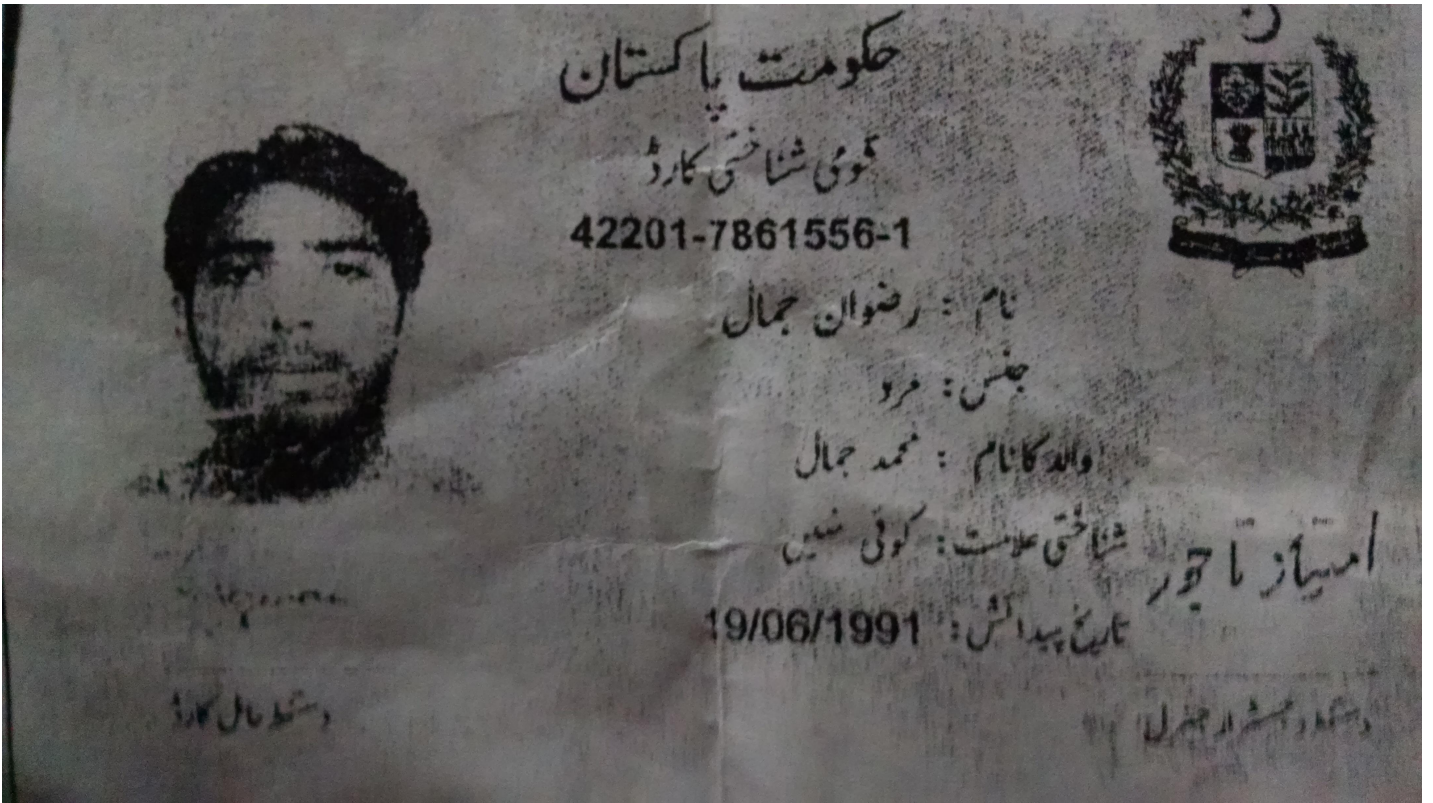 حکومت پاکستان
قومی شناختی کارڈ
42201-7861556-1
نام : رضوان جمال
جنس : مرد
والد کا نام : محمد جمال
شناختی علامت : کوئی نہیں
امتیاز تاجور
تاریخ پیدائش : 19/06/1991
دستخط حامل کارڈ
دستخط رجسٹرار جنرل